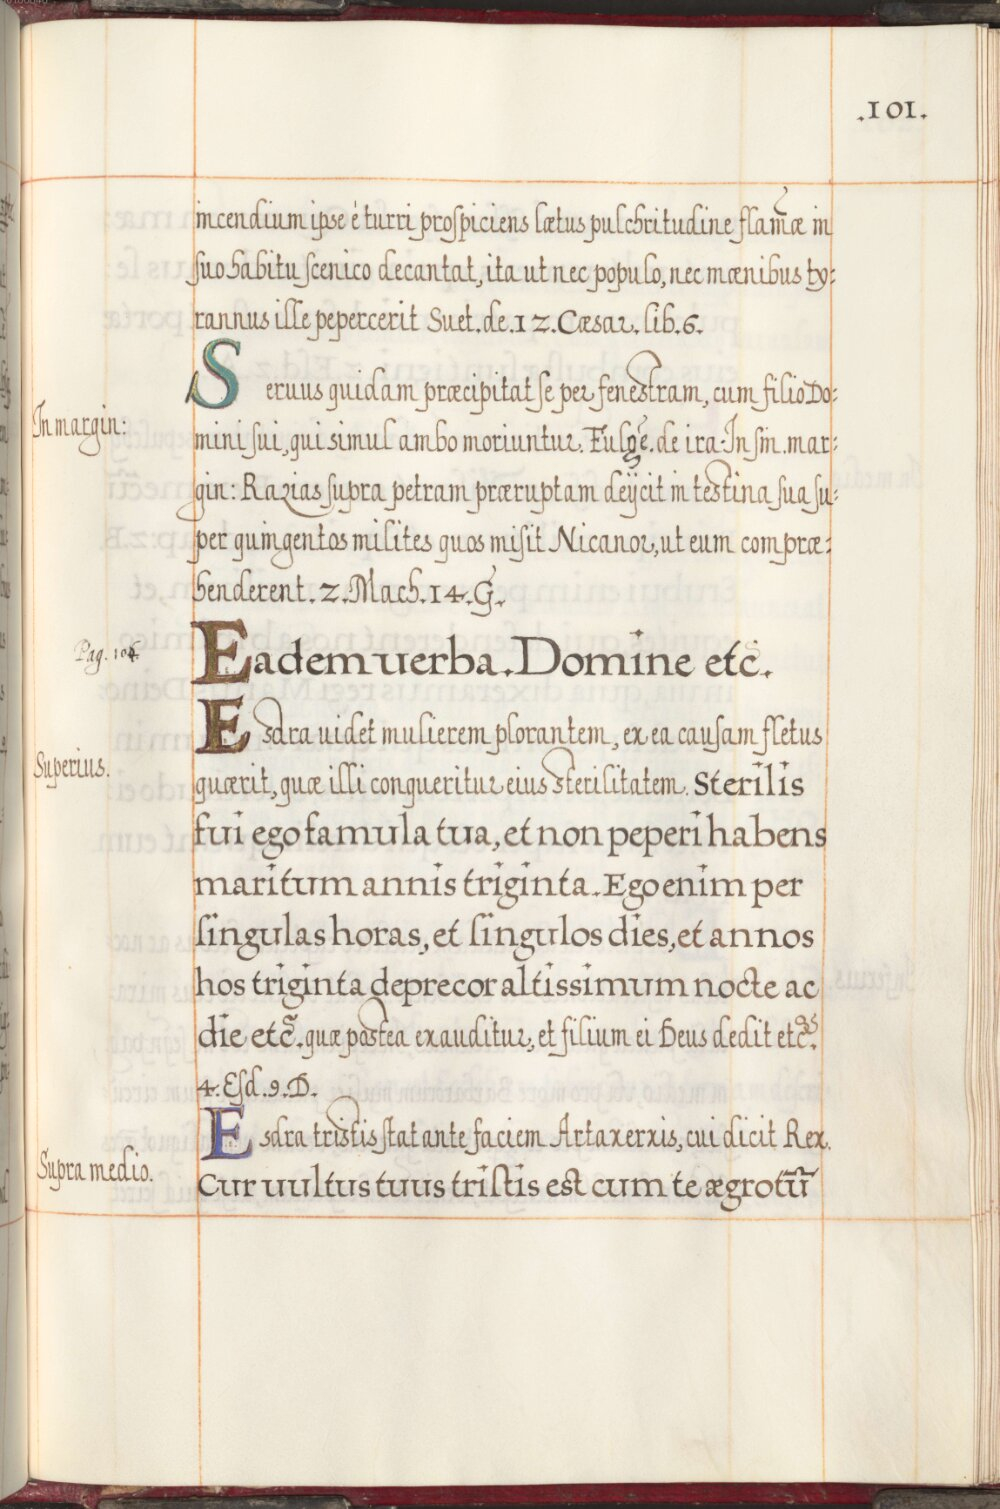 .101.
incendium ipse è turri prospiciens lætus pulchritudine flam̃æ in
suo habitu scenico decantat, ita ut nec populo, nec mænibus ty:
rannus ille pepercerit Suet. de .12. Cæsar. lib. 6.
Seruus quidam præcipitat se per fenestram, cum filio Do:
In margin:
mini sui, qui simul ambo moriuntur. Fulg̃e. de ira. In sin̄. mar:
gin: Razias supra petram præruptam deijcit intestina sua su:
per quingentos milites quos misit Nicanor, ut eum compræ:
henderent. 2. Mach. 14. G.
Pag. 104
Eadem uerba. Domine etc̃.
Esdra uidet mulierem plorantem, ex ea causam fletus
Superius.
quærit, quæ illi conqueritur eius sterilitatem. Sterilis
fui ego famula tua, et non peperi habens
maritum annis triginta. Ego enim per
singulas horas, et singulos dies, et annos
hos triginta deprecor altissimum nocte ac
die etc̃. quæ postea exauditur, et filium ei Deus dedit etc̃.
4. Esd. 9. D.
Esdra tristis stat ante faciem Artaxerxis, cui dicit Rex.
Supra medio.
Cur uultus tuus tristis est cum te ægrotũ